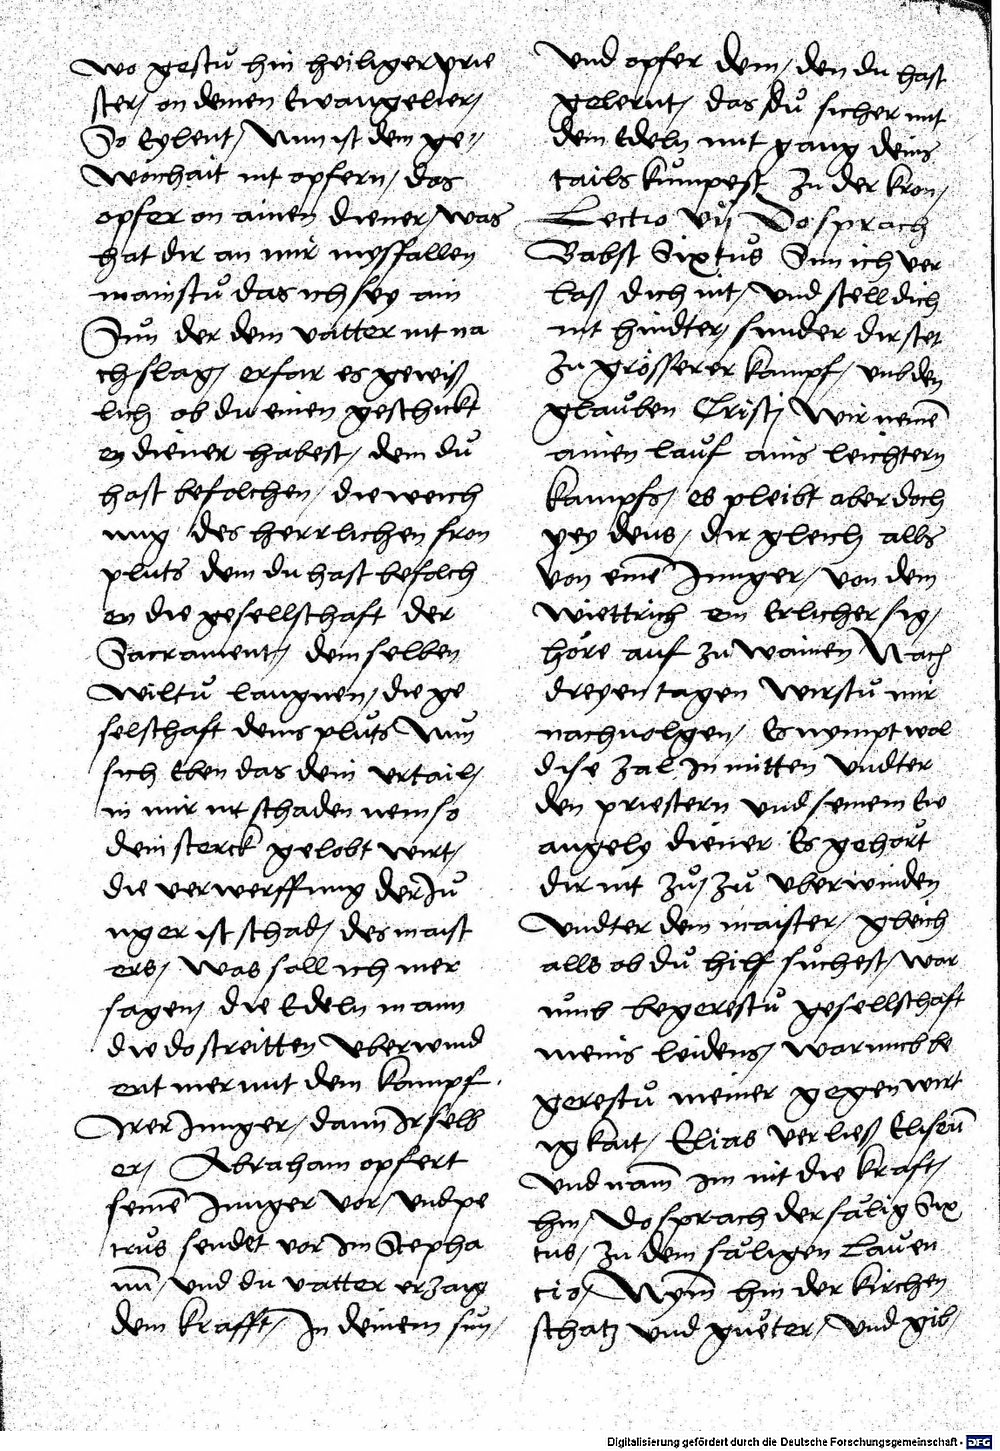 wo gestu̇ hin heiliger prie
ster/ on deinen Ewangelier/
So Eylent/ Nun ist dem ge„
wonhait nit opfern/ das
opfer on ainen diener/ was
hat dir an mir mysfallen
mainstu̇ das ich sey ain
Sun der dem vatter nit na
chslag/ erfar es gewiß
lich ob du einen geschickt
en diener habest/ dem du̇
hast befolchen/ die weich
ung des herrlichen fron
pluts dem du hast befolch
en die gesellschaft der
Sacrament/ demselben
wiltu̇ laugnen/ die ge
selschaft deins plu̇ts Nun
sich Eben das dein vrtail/
in mir nit schaden nem so
dein sterck gelobt wirt/
die verwerffung der Ju̇
nger ist schad/ des maist
ers/ was soll ich mer
sagen/ die Edeln mann
die do streitten vberwind
ent mer mit dem kampf
Irer Junger/ dann Ir selb
er/ Abraham opfert
seinē Junger vor/ vnd pe
tru̇s sendet vor im Stepha
nū/ vnd du vatter erzaig
dein krafft/ In deinem sun/
vnd opfer dem/ den du hast
gelernt/ das du̇ sicher mit
dem Edeln mit gang deins
tails kumpest zu der kron/
Lectio vij Do sprach
Babst Sixtu̇s Sun ich ver
laß dich nit/ vnd stell dich
nit hindter/ sunder dir stet
zu grösserer kampf/ vmb den
glau̇ben Cristi/ wir nemē
ainen lau̇f ains leichtern
kampfs/ es pleibt aber doch
pey deus/ dir gleich alls
von einē Junger/ von dem
wiettrich ein Erlicher sig/
höre auf zu wainen Nach
dreyen tagen wirstu̇ mir
nachuolgen/ Es nympt wol
dise zal In mitten vndter
den priestern vnd seinem Ew
angely diener Es gehört
dir nit zu̇/ zu̇ vberwinden
vndter dem maister/ gleich
alls ob du̇ hilff su̇chest/ war
u̇mb begerestu̇ gesellschaft
meins leidens/ warumb be
gerestu̇ meiner gegenwirt
igkait/ Elias verließ Eliseū
vnd nam̄ im nit die kraft/
hin/ Do sprach der sälig Six
tus/ zu dem säligen Lau̇ren
cio/ Nym̄ hin der kirchen
schatz vnd gu̇eter/ vnd gib/
Digitalisierung gefördert durch die Deutsche Forschungsgemeinschaft - DFG